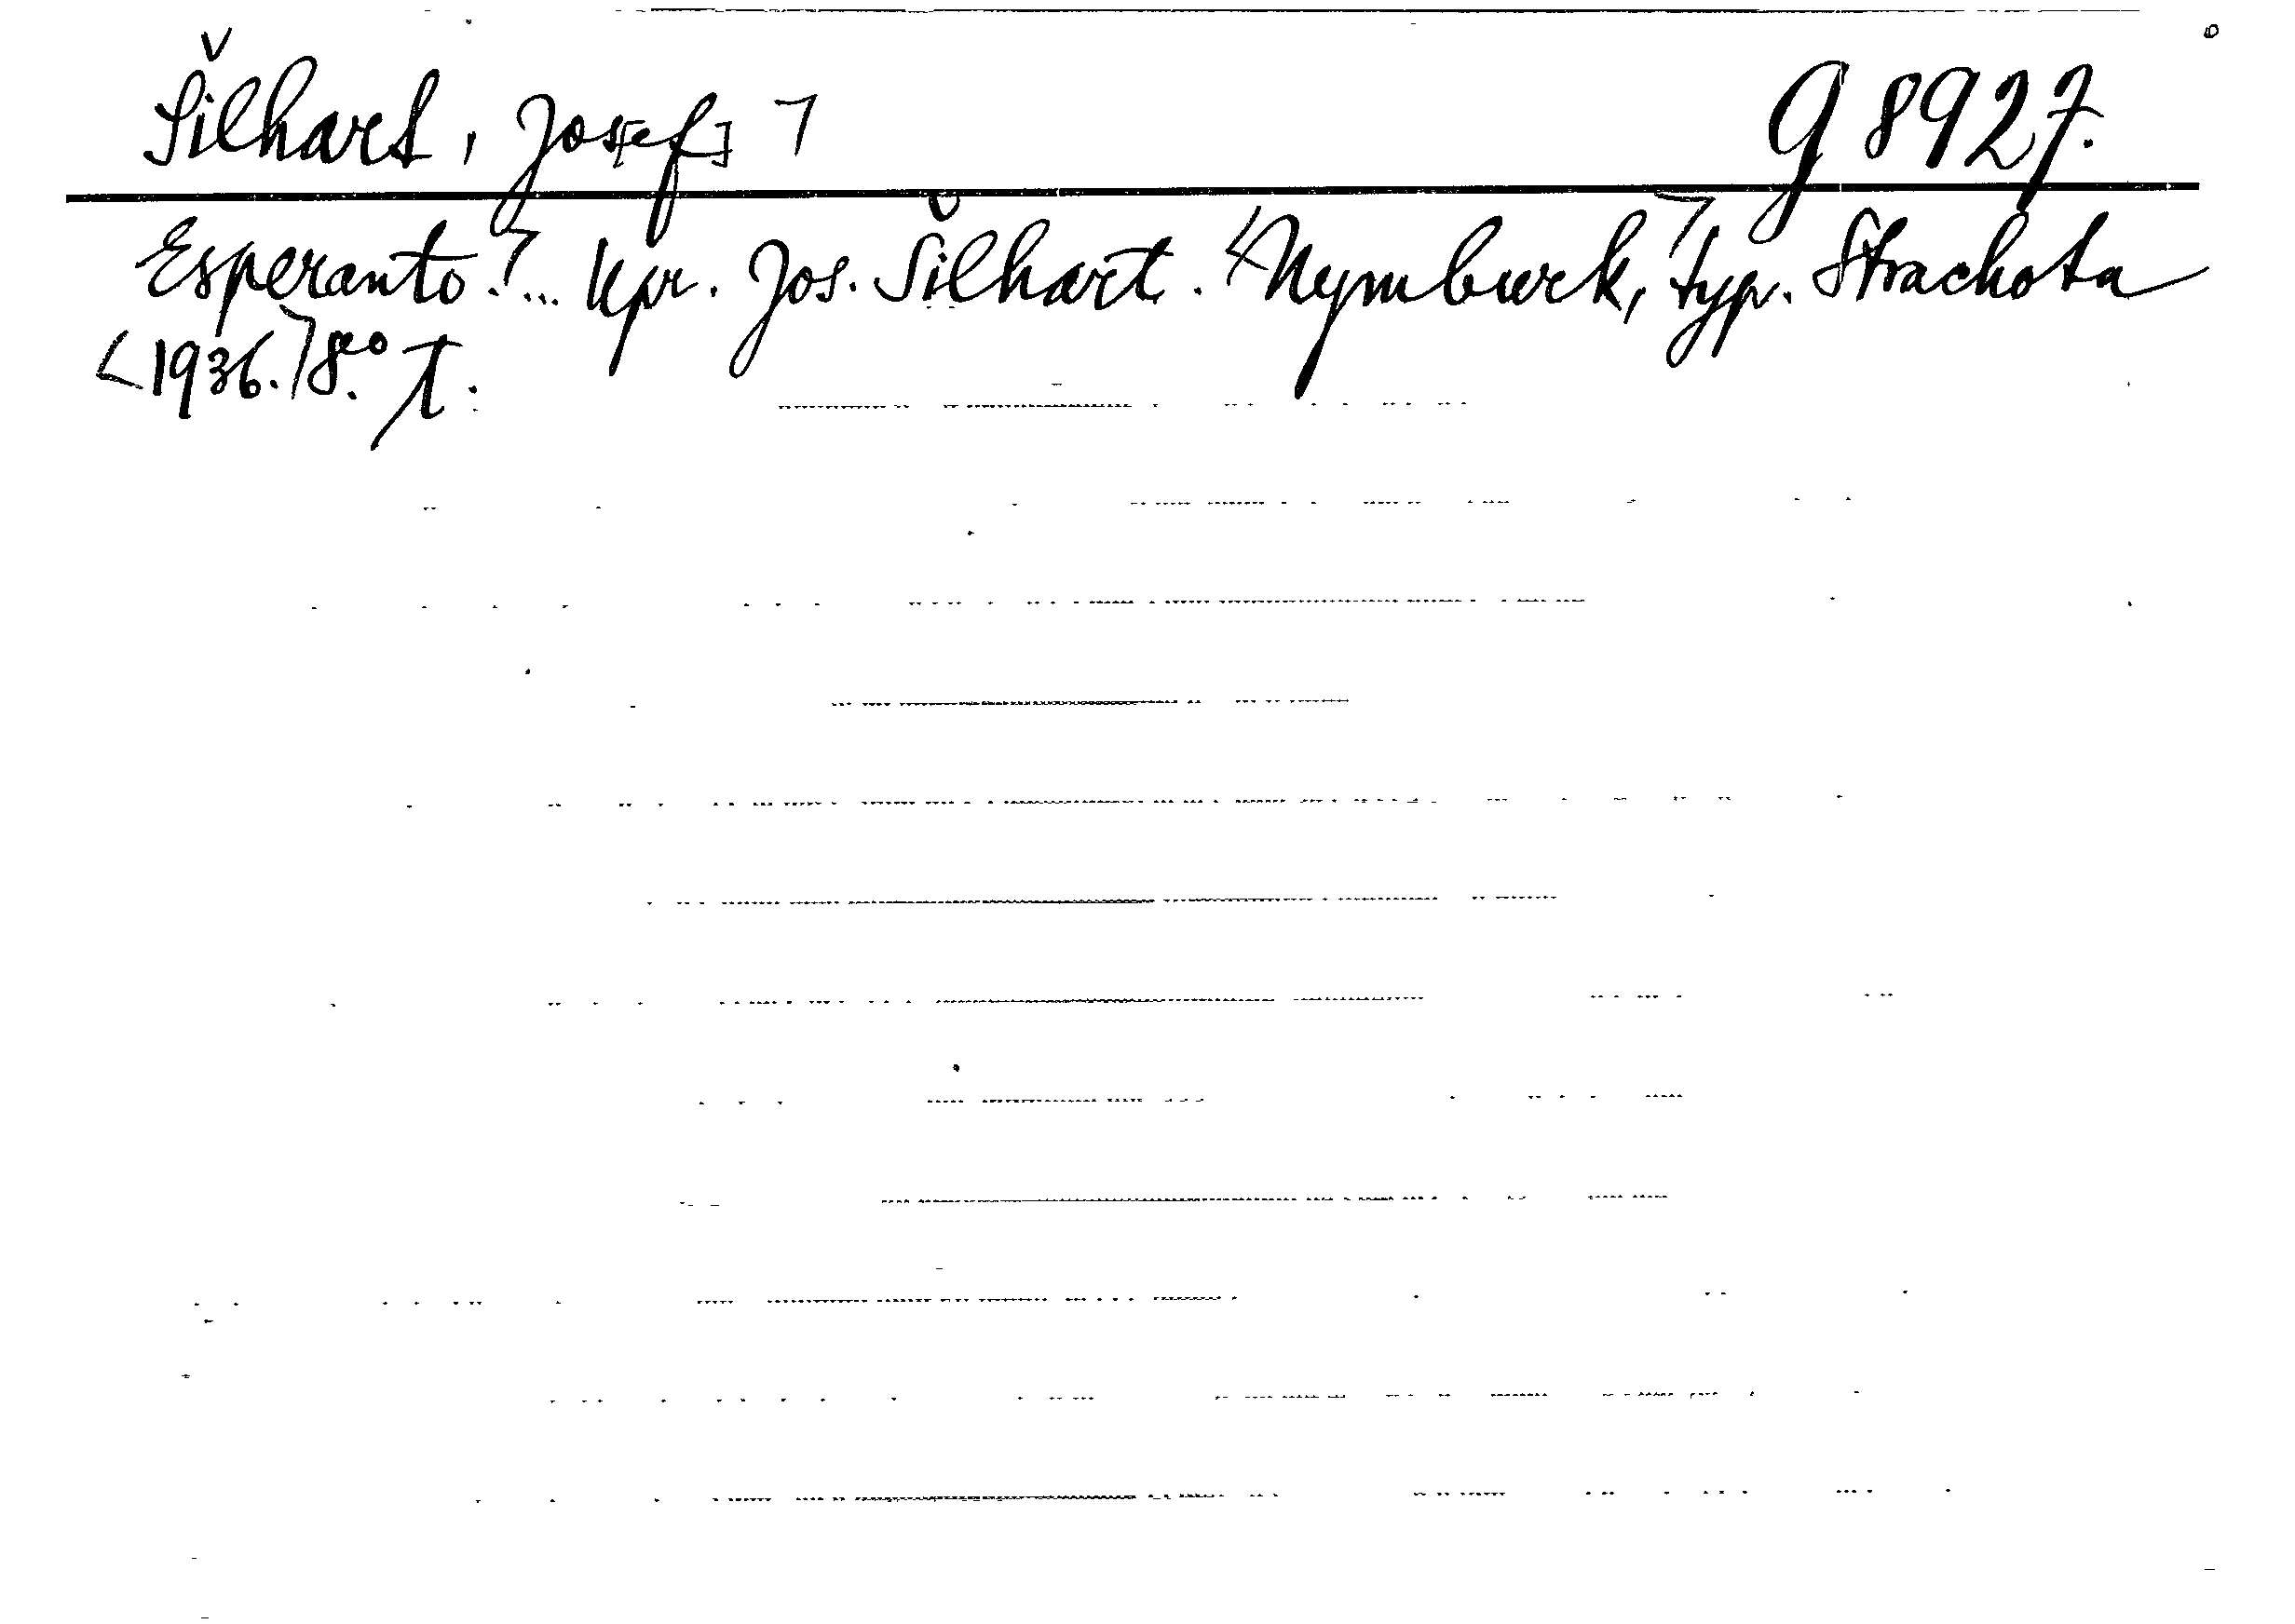 Šilhart, Jos[ef] ⌉ G 8927.
Esperanto.⌉... Upr. Jos. Šilhart. Nymburk,⌉ typ. Strachota
<1936.⌉ 8.° T.